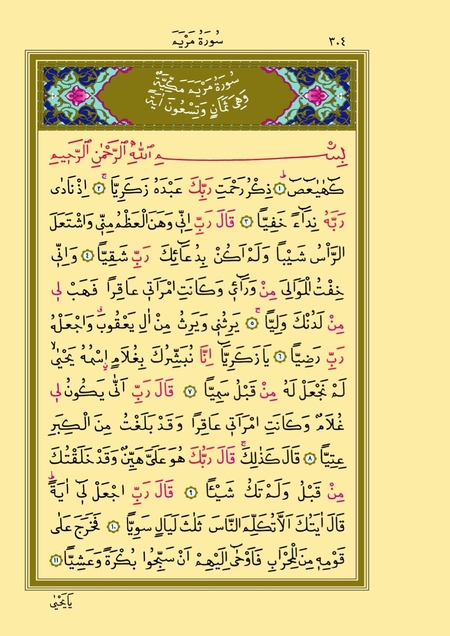 سُورَةُ مَرْيَمَ ٣٠٤
سُورَةُ مَرْيَمَ مَكِّيَّةٌ
وَهِيَ ثَمَانٍ وَتِسْعُونَ اٰيَةً
بِسْمِ اللّٰهِ الرَّحْمٰنِ الرَّحِيمِ
كٓهٰيٰعٓصٓ ﴿١﴾ ذِكْرُ رَحْمَتِ رَبِّكَ عَبْدَهُ زَكَرِيَّا ﴿٢﴾ اِذْ نَادٰى
رَبَّهُ نِدَٓاءً خَفِيًّا ﴿٣﴾ قَالَ رَبِّ اِنّٖى وَهَنَ الْعَظْمُ مِنّٖى وَاشْتَعَلَ
الرَّاْسُ شَيْبًا وَلَمْ اَكُنْ بِدُعَٓائِكَ رَبِّ شَقِيًّا ﴿٤﴾ وَاِنّٖى
خِفْتُ الْمَوَالِىَ مِنْ وَرَٓاءٖى وَكَانَتِ امْرَاَتٖى عَاقِرًا فَهَبْ لٖى
مِنْ لَدُنْكَ وَلِيًّا ﴿٥﴾ يَرِثُنٖى وَيَرِثُ مِنْ اٰلِ يَعْقُوبَ وَاجْعَلْهُ
رَبِّ رَضِيًّا ﴿٦﴾ يَا زَكَرِيَّٓا اِنَّا نُبَشِّرُكَ بِغُلَامٍ اِسْمُهُ يَحْيٰى
لَمْ نَجْعَلْ لَهُ مِنْ قَبْلُ سَمِيًّا ﴿٧﴾ قَالَ رَبِّ اَنّٰى يَكُونُ لٖى
غُلَامٌ وَكَانَتِ امْرَاَتٖى عَاقِرًا وَقَدْ بَلَغْتُ مِنَ الْكِبَرِ
عِتِيًّا ﴿٨﴾ قَالَ كَذٰلِكَ قَالَ رَبُّكَ هُوَ عَلَىَّ هَيِّنٌ وَقَدْ خَلَقْتُكَ
مِنْ قَبْلُ وَلَمْ تَكُ شَيْـًٔا ﴿٩﴾ قَالَ رَبِّ اجْعَلْ لٖٓى اٰيَةً
قَالَ اٰيَتُكَ اَلَّا تُكَلِّمَ النَّاسَ ثَلٰثَ لَيَالٍ سَوِيًّا ﴿١٠﴾ فَخَرَجَ عَلٰى
قَوْمِهٖ مِنَ الْمِحْرَابِ فَاَوْحٰٓى اِلَيْهِمْ اَنْ سَبِّحُوا بُكْرَةً وَعَشِيًّا ﴿١١﴾
يَا يَحْيٰى